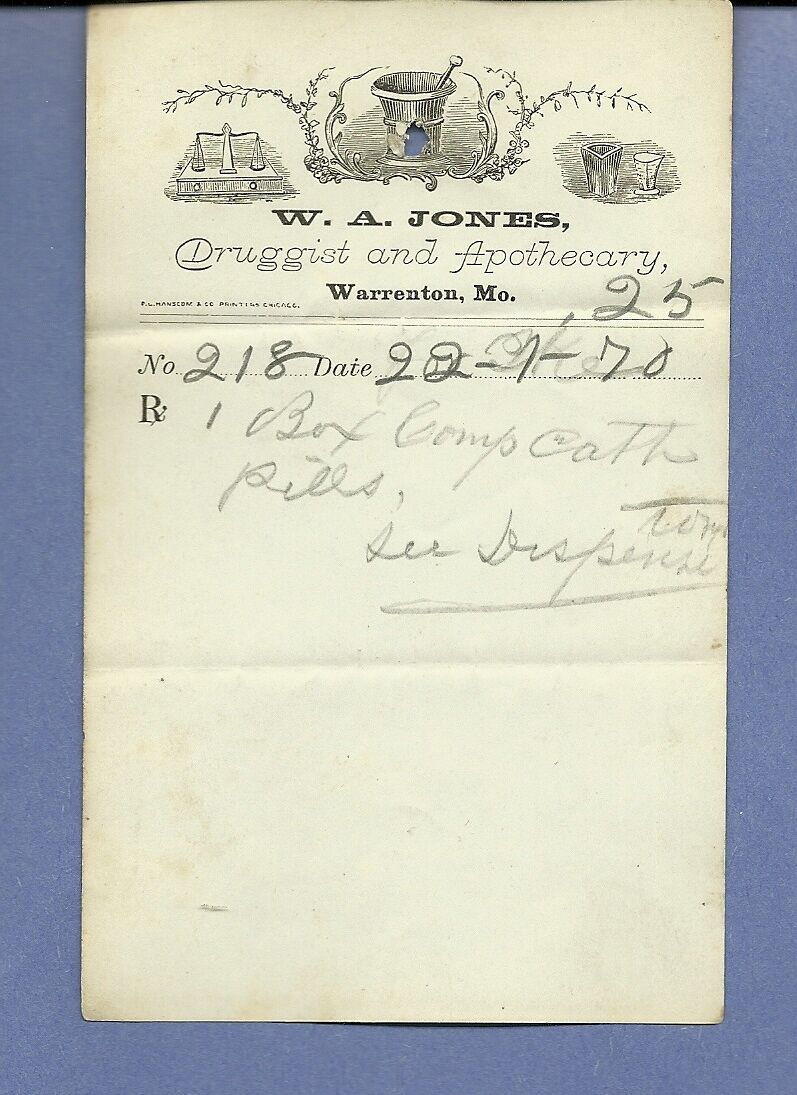 W. A. JONES,
Druggist and Apothecary,
Warrenton, Mo.
P.L. HANSCOM & CO PRINTERS CHICAGO.
,25
No. 218 Date 22-1-70
Rx 1 Box Comp Cath
Pills,
See Dispens